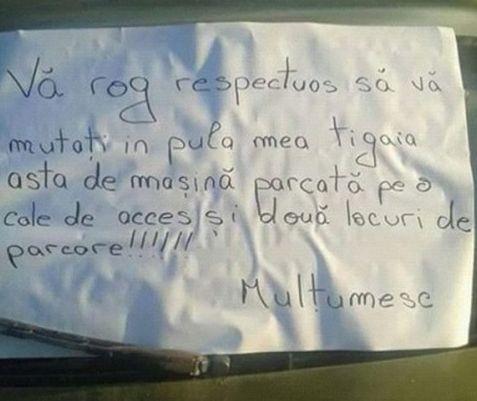 Vă rog respectuos să vă
mutați in pula mea tigaia
asta de mașină parcată pe o
cale de acces și două locuri de
parcare!!!!!!!
Mulțumesc